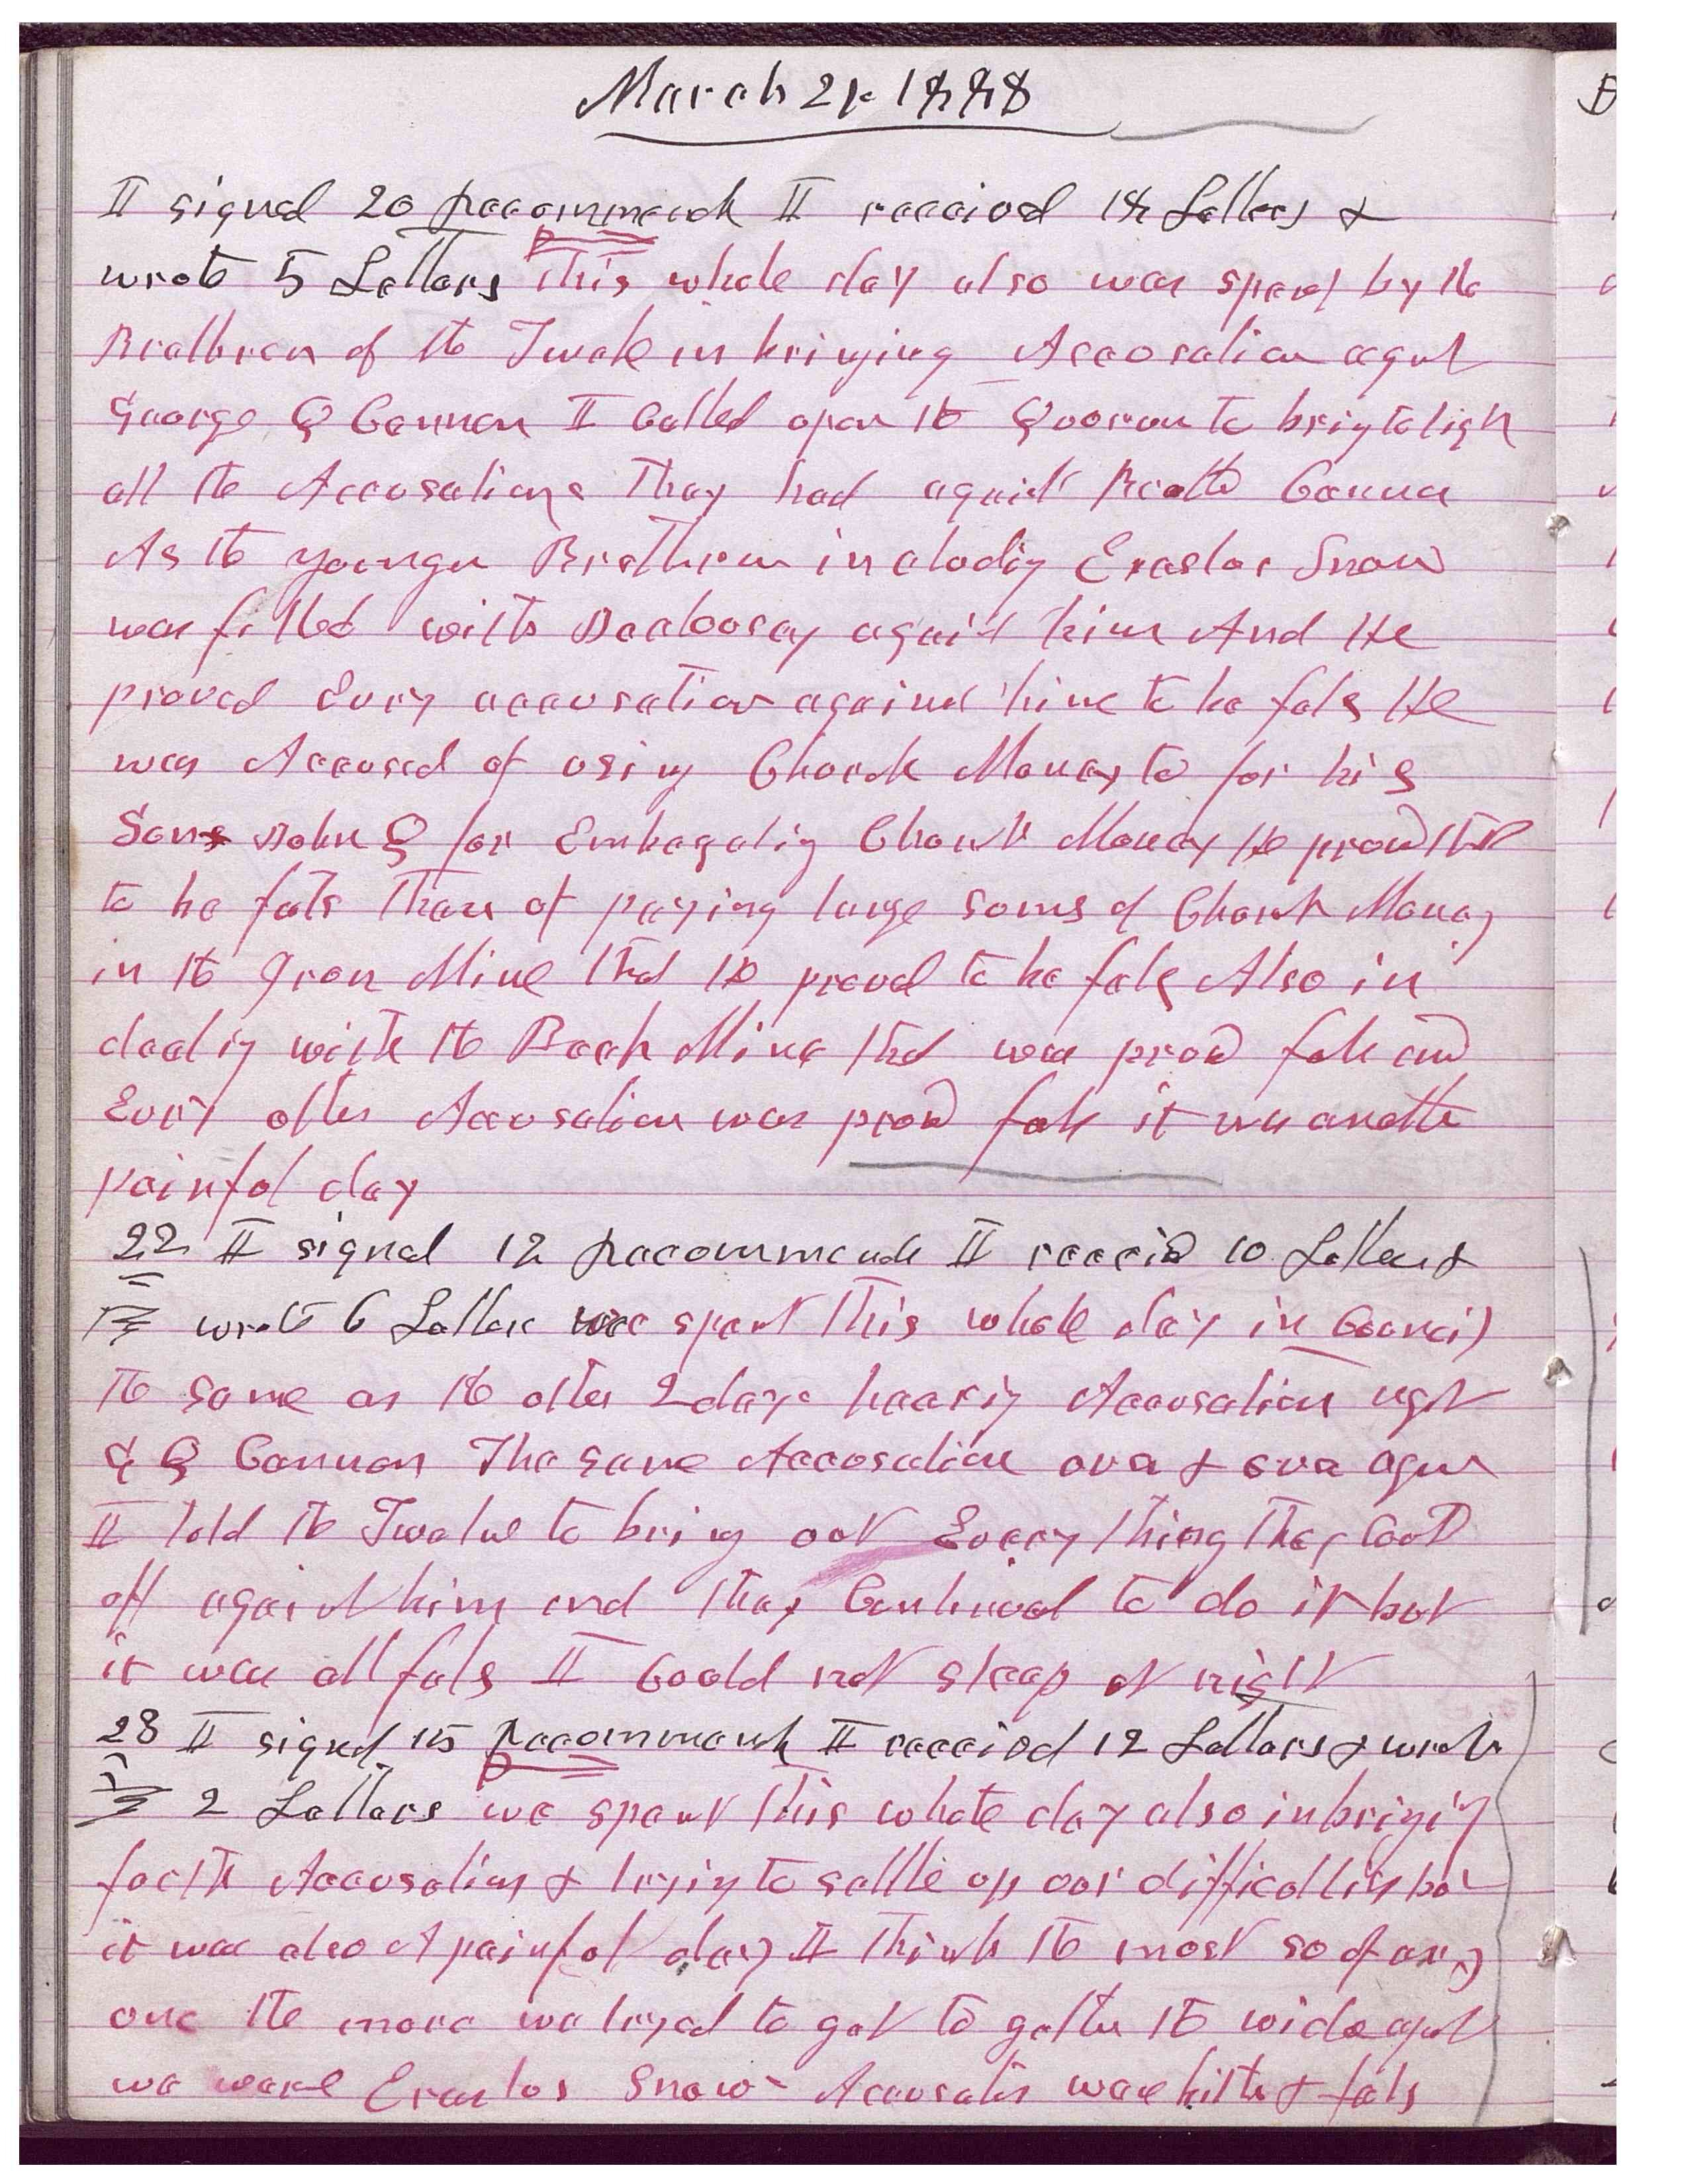 March 21. 1888
I signed 20 Recommends I received 18 Letters &
wrote 5 Letters This whole day also was spent by the
Brethren of the Twelve in bringing Accusation agst
George Q Cannon I Called upon the Quorum to bring to light
all the Accusations They had against Brother Cannon
As the younger Brethren including Erastus Snow
was filled with Jealousey against him And He
proved Evry accusation against him to be fals He
was Accused of using Church Money to for his
Son John Q for Embezzling Church Money He proved that
to be fals Then of paying large sums of Church Money
in the Iron Mine that He proved to be fals Also in
dealing with the Beck Mine that was proved fals and
Evry other Accusation was proved fals it was another
painful day
22 I signed 12 Recommends I received 10 Letters &
wrote 6 Letters we spent this whole day in Council
the same as the other 2 days hearing Accusation agst
G Q Cannon The same Accusation over & over again
I told the Twelve to bring out Evvery thing they Could
off against him and they Continued to do it but
it was all fals I Could not sleep at night
23 I signed 15 Recommends I received 12 Letters & wrote
2 Letters we spent this whole day also in bringing
forth Accusations & trying to settle up our difficulties but
it was also A painful day I think the most so of any
one the more we tryed to get to gether the wider apart
we were Erastus Snow Accusations were bitter & fals